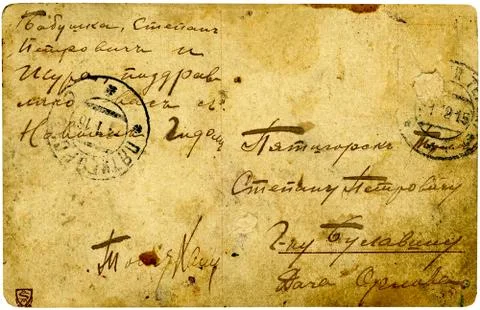 Бабушка, Степанъ
Петровичъ и
Шура поздрав
ляю васъ съ
Новымъ Годомъ
Пятигорскъ
Степану Петровичу
Г-ну Булавину
Дача Орлова
ПЯТИГОРСК